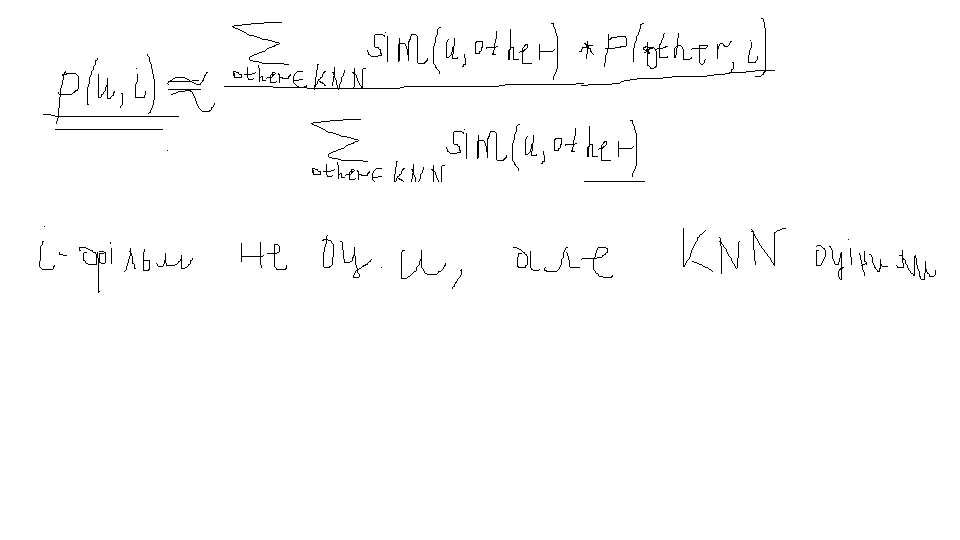 p(u, i) ≅ ∑ other∈KNN sim(u, other) * p(other, i)
∑ other∈KNN sim(u, other)
i-фільм не оц. u, але KNN оцінили